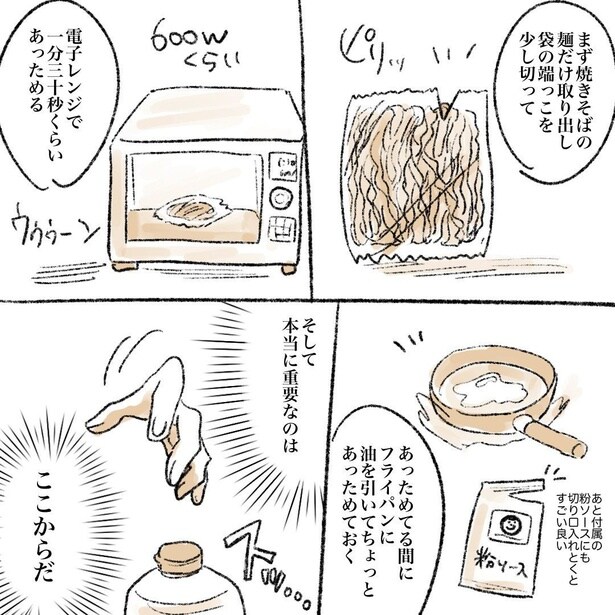 まず焼きそばの
麺だけ取り出し
袋の端っこを
少し切って
ピリッ
600w
くらい
電子レンジで
一分三十秒くらい
あっためる
ウゥゥーン
あっためてる間に
フライパンに
油を引いてちょっと
あっためておく
あと付属の
粉ソースにも
切り口入れとくと
すごい良い
粉ソース
そして
本当に重要なのは
ここからだ
スッ…